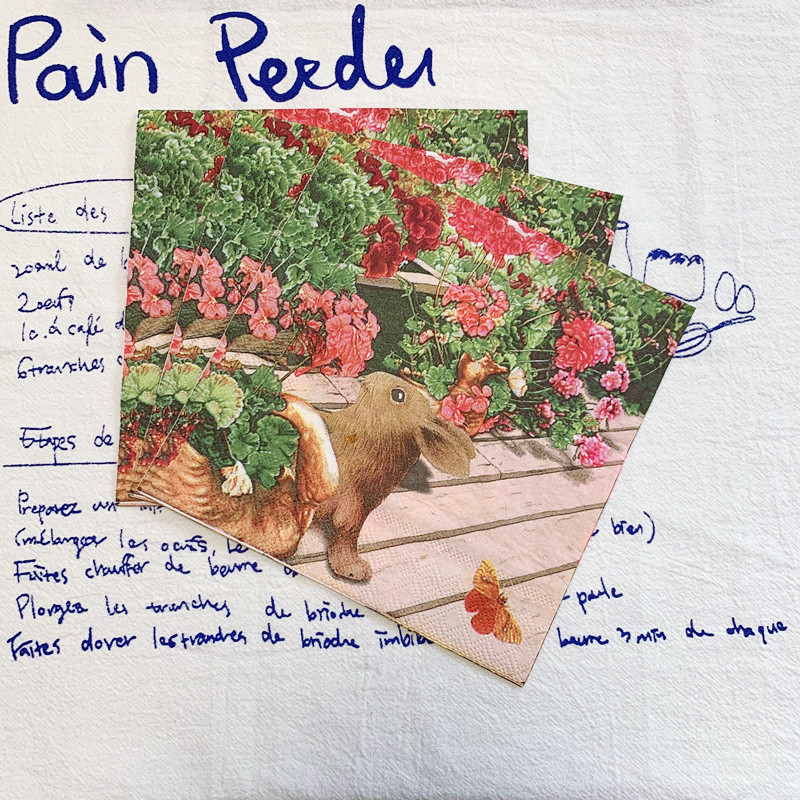 Pain Perdu
Liste des
200ml de
2 oeufs
1c. à café d
6 tranches
Etapes de
Preparez un
(mélanger les oeufs, le bien)
Faites chauffer de beurre
Plongez les tranches de brioche
Faites dorer les tranches de brioche imbib beurre 3 min de chaque